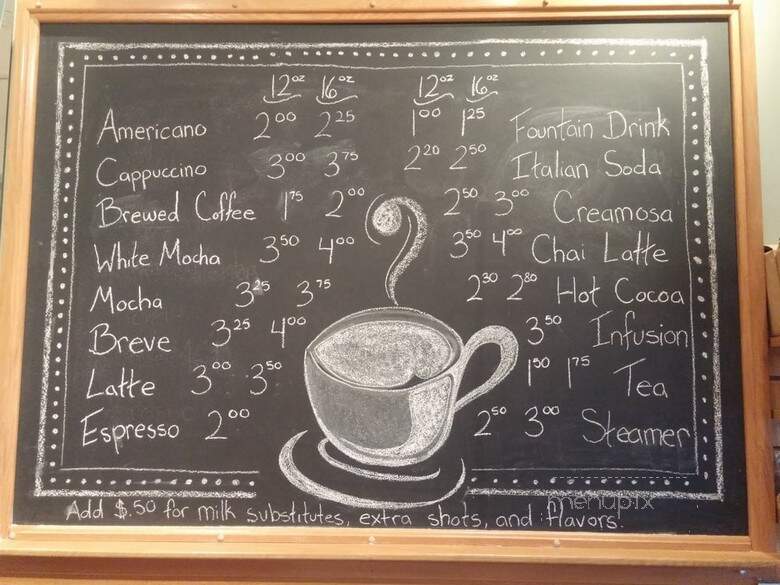 12oz 16oz 12oz 16oz
Americano 2.00 2.25 1.00 1.25 Fountain Drink
Cappuccino 3.00 3.75 2.20 2.50 Italian Soda
Brewed Coffee 1.75 2.00 2.50 3.00 Creamosa
White Mocha 3.50 4.00 3.50 4.00 Chai Latte
Mocha 3.25 3.75 2.30 2.80 Hot Cocoa
Breve 3.25 4.00 3.50 Infusion
Latte 3.00 3.50 1.50 1.75 Tea
Espresso 2.00 2.50 3.00 Steamer
Add $.50 for milk substitutes, extra shots, and flavors.
menupix